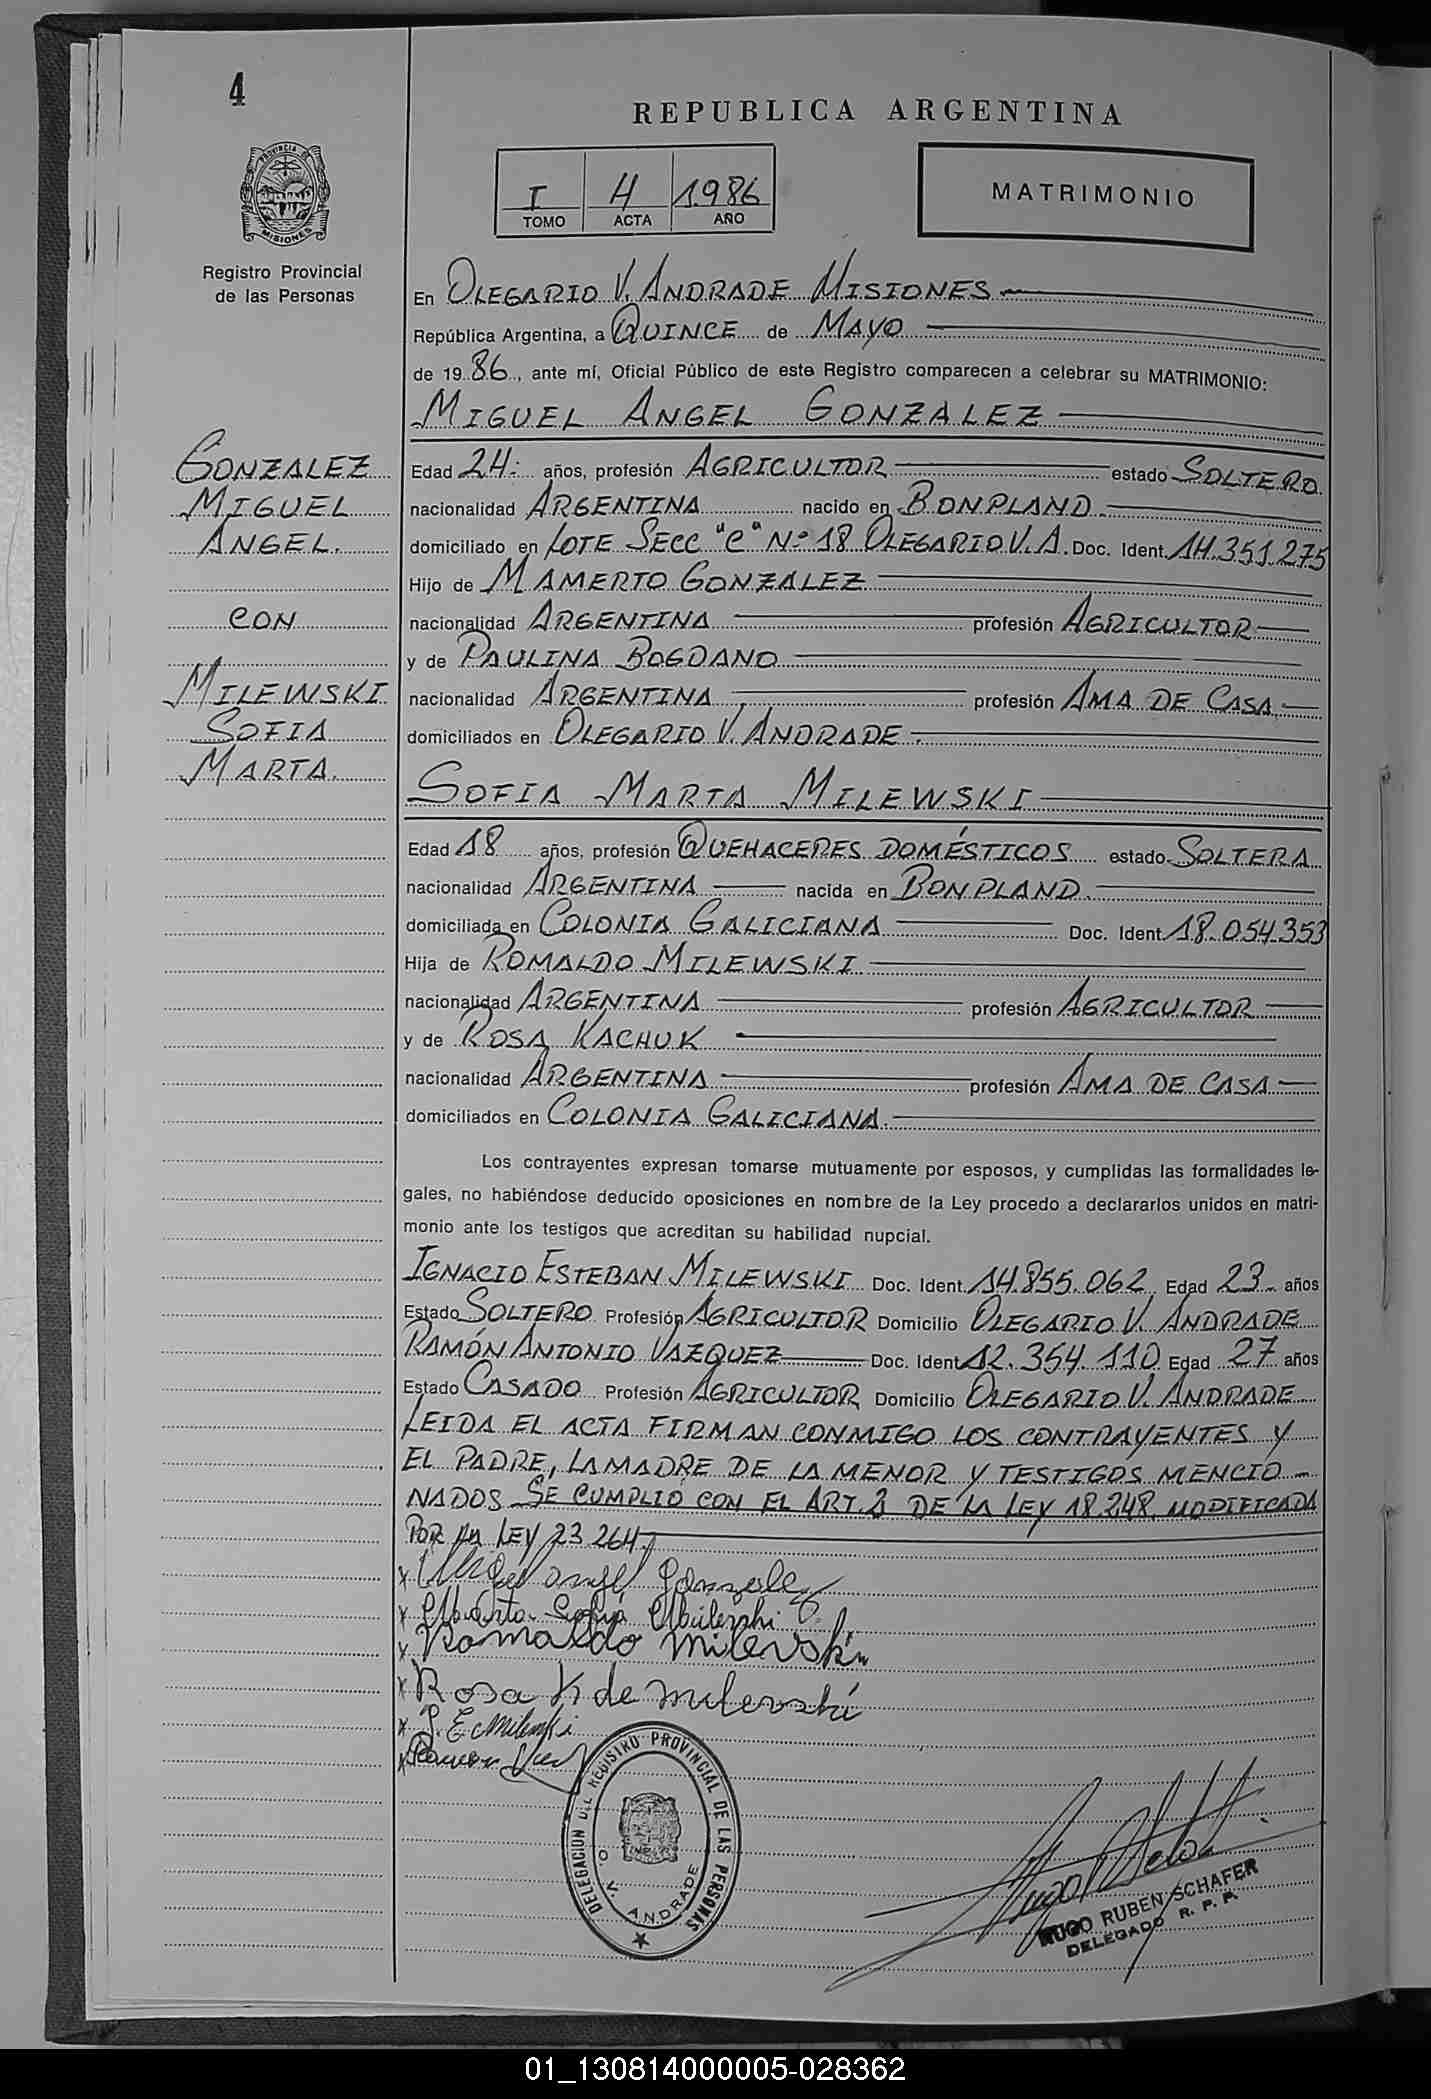 4
REPUBLICA ARGENTINA
I 4 1986
TOMO ACTA AÑO
MATRIMONIO
PROVINCIA DE
MISIONES
Registro Provincial
de las Personas
En OLEGARIO V. ANDRADE MISIONES
República Argentina, a QUINCE de MAYO
de 19 86, ante mí, Oficial Público de este Registro comparecen a celebrar su MATRIMONIO:
MIGUEL ANGEL GONZALEZ
GONZALEZ
MIGUEL
ANGEL.
CON
MILEWSKI
SOFIA
MARTA.
Edad 24.- años, profesión AGRICULTOR estado SOLTERO
nacionalidad ARGENTINA nacido en BONPLAND.
domiciliado en LOTE SECC "C" Nº 18 OLEGARIO V. A. Doc. Ident. 14.351.275
Hijo de MAMERTO GONZALEZ
nacionalidad ARGENTINA profesión AGRICULTOR
y de PAULINA BOGDANO
nacionalidad ARGENTINA profesión AMA DE CASA
domiciliados en OLEGARIO V. ANDRADE.
SOFIA MARTA MILEWSKI
Edad 18 años, profesión QUEHACERES DOMÉSTICOS estado SOLTERA
nacionalidad ARGENTINA nacida en BONPLAND.
domiciliada en COLONIA GALICIANA Doc. Ident. 18.054.353
Hija de ROMALDO MILEWSKI
nacionalidad ARGENTINA profesión AGRICULTOR
y de ROSA KACHUK
nacionalidad ARGENTINA profesión AMA DE CASA
domiciliados en COLONIA GALICIANA.
Los contrayentes expresan tomarse mutuamente por esposos, y cumplidas las formalidades le-
gales, no habiéndose deducido oposiciones en nombre de la Ley procedo a declararlos unidos en matri-
monio ante los testigos que acreditan su habilidad nupcial.
IGNACIO ESTEBAN MILEWSKI Doc. Ident. 14.855.062 Edad 23 años
Estado SOLTERO Profesión AGRICULTOR Domicilio OLEGARIO V. ANDRADE
RAMÓN ANTONIO VAZQUEZ Doc. Ident. 12.354.110 Edad 27 años
Estado CASADO Profesión AGRICULTOR Domicilio OLEGARIO V. ANDRADE
LEIDA EL ACTA FIRMAN CONMIGO LOS CONTRAYENTES Y
EL PADRE, LA MADRE DE LA MENOR Y TESTIGOS MENCIO-
NADOS SE CUMPLIÓ CON EL ART. 2 DE LA LEY 18.248. MODIFICADA
POR LA LEY 23264
x Miguel angel Gonzalez
x Marta Sofia Milewski
x Romaldo milevski
x Rosa K de milevski
x I. E. Milewski
x Ramon
DELEGACION DEL REGISTRO PROVINCIAL DE LAS PERSONAS
O. V. ANDRADE
HUGO RUBEN SCHAFER
DELEGADO R. P. P.
01_130814000005-028362